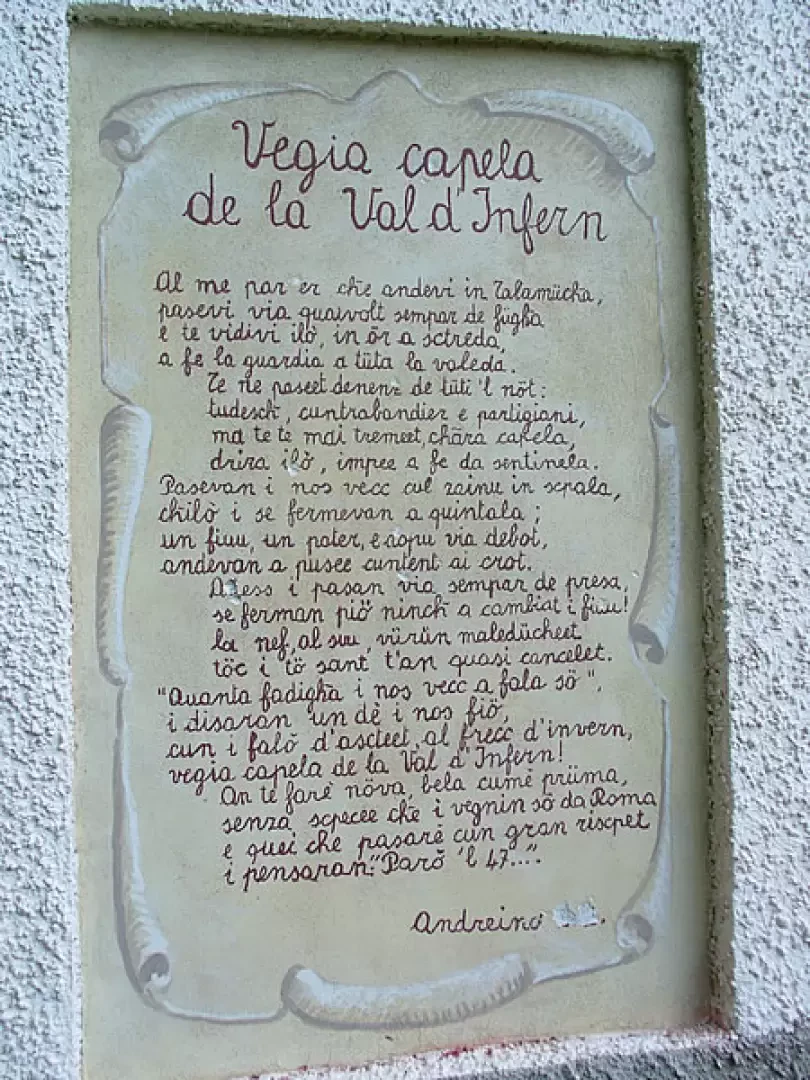 Vegia capela
de la Val d'Infern
Al me par er che andevi in Talamücha,
pasevi via quaivolt sempar de fügha
e te vidivi ilò, in ör a sctreda,
a fe la guardia a tüta la valeda.
Te ne paseet denenz de tüti 'l nöt:
tudesch, cuntrabandier e partigiani,
ma te te mai tremeet, chära capela,
drira ilò, impee a fe da sentinela.
Pasevan i nos vecc cul zainu in scpala,
chilò i se fermevan a quintala;
un fiuu, un pater, e via debot,
andevan a pusee cuntent ai crot.
Adess i pasan via sempar de presa,
se ferman piö ninch a cambiat i fiuu!
la nef, al suu, vürün maledücheet
töc i tö sant t'an quasi cancelet.
"Quanta fadigha i nos vecc a fala sö",
i disaran un dè i nos fiö,
cun i falò d'ascteet, al frecc d'invern,
vegia capela de la Val d'Infern!
An te farè növa, bela cumè prüma,
senza scpecee che i vegnin sö da Roma
e quei che pasarè cun gran riscpet
i pensaran: "Parò 'l 47...".
Andreino